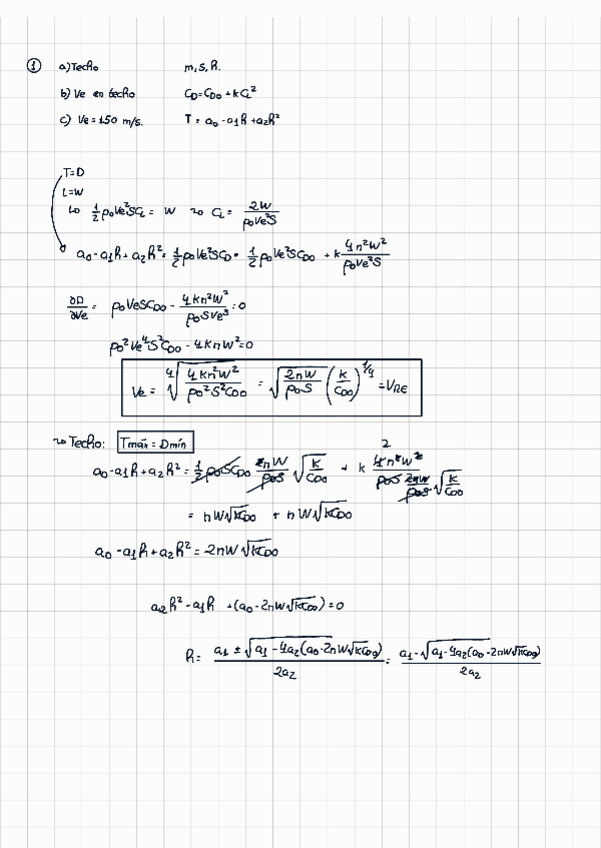 ① a) Techo m, S, h.
b) Ve en techo CD = CD0 + kCL²
c) Ve = 150 m/s. T = a0 - a1h + a2h²
T = D
L = W
↳ 1/2 ρ0Ve²SCL = W ⇝ CL = 2W / ρ0Ve²S
a0 - a1h + a2h² = 1/2 ρ0Ve²SCD = 1/2 ρ0Ve²SCD0 + k 4n²W² / ρ0Ve²S
∂D/∂Ve = ρ0VeSCD0 - 4kn²W² / ρ0SVe³ = 0
ρ0²Ve⁴S²CD0 - 4knW² = 0
Ve = ⁴√(4kn²W² / ρ0²S²CD0) = √(2nW / ρ0S) (k / CD0)^1/4 = VRE
⇝ Techo: Tmáx = Dmín
a0 - a1h + a2h² = 1/2 ρ0SCD0 2nW / ρ0S √(k / CD0) + k 4n²W² 2 / ρ0S 2nW / ρ0S √(k / CD0)
= nW√kCD0 + nW√kCD0
a0 - a1h + a2h² = 2nW√kCD0
a2h² - a1h + (a0 - 2nW√kCD0) = 0
h = a1 ± √(a1 - 4a2(a0 - 2nW√kCD0)) / 2a2 = a1 - √(a1 - 4a2(a0 - 2nW√kCD0)) / 2a2